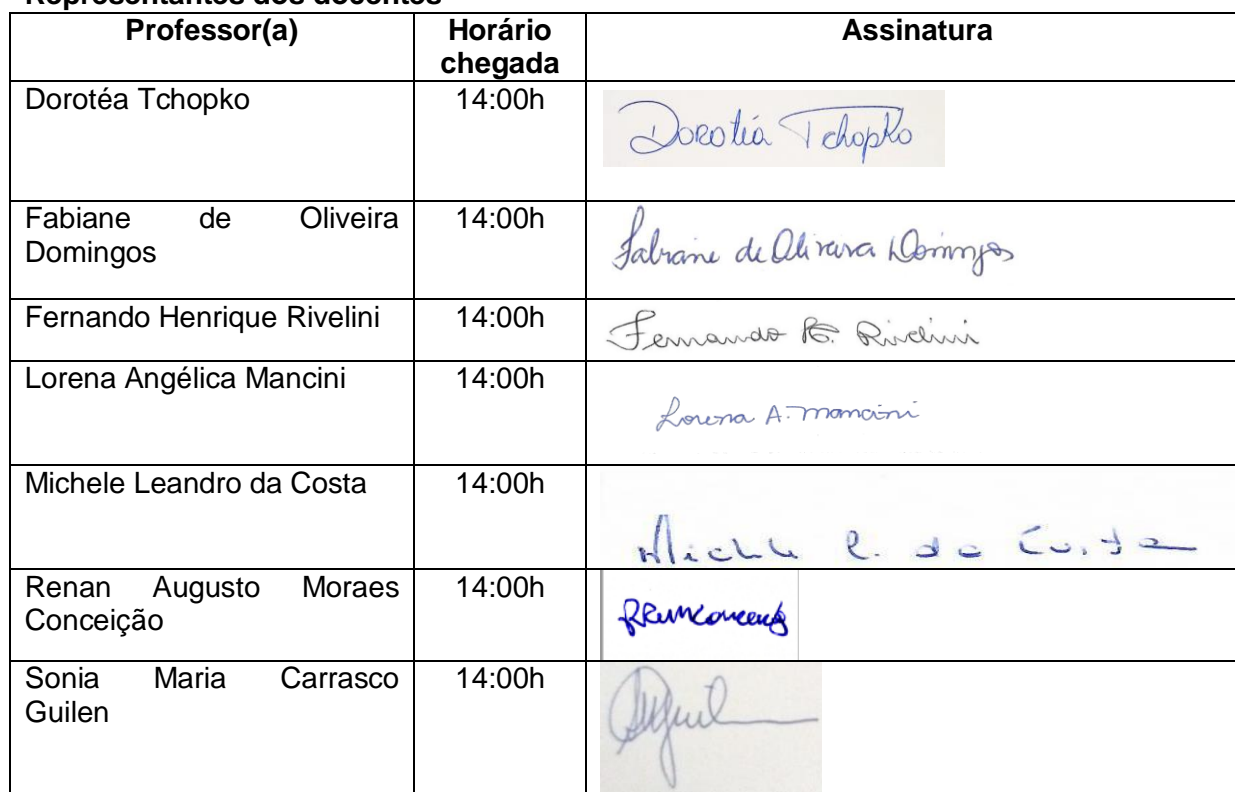 Representantes dos docentes
Professor(a) Horário Assinatura
chegada
Dorotéa Tchopko 14:00h Dorotéa Tchopko
Fabiane de Oliveira 14:00h Fabiane de Oliveira Domingos
Domingos
Fernando Henrique Rivelini 14:00h Fernando H. Rivelini
Lorena Angélica Mancini 14:00h Lorena A. Mancini
Michele Leandro da Costa 14:00h Michele L. da Costa
Renan Augusto Moraes 14:00h
Conceição
Sonia Maria Carrasco 14:00h
Guilen